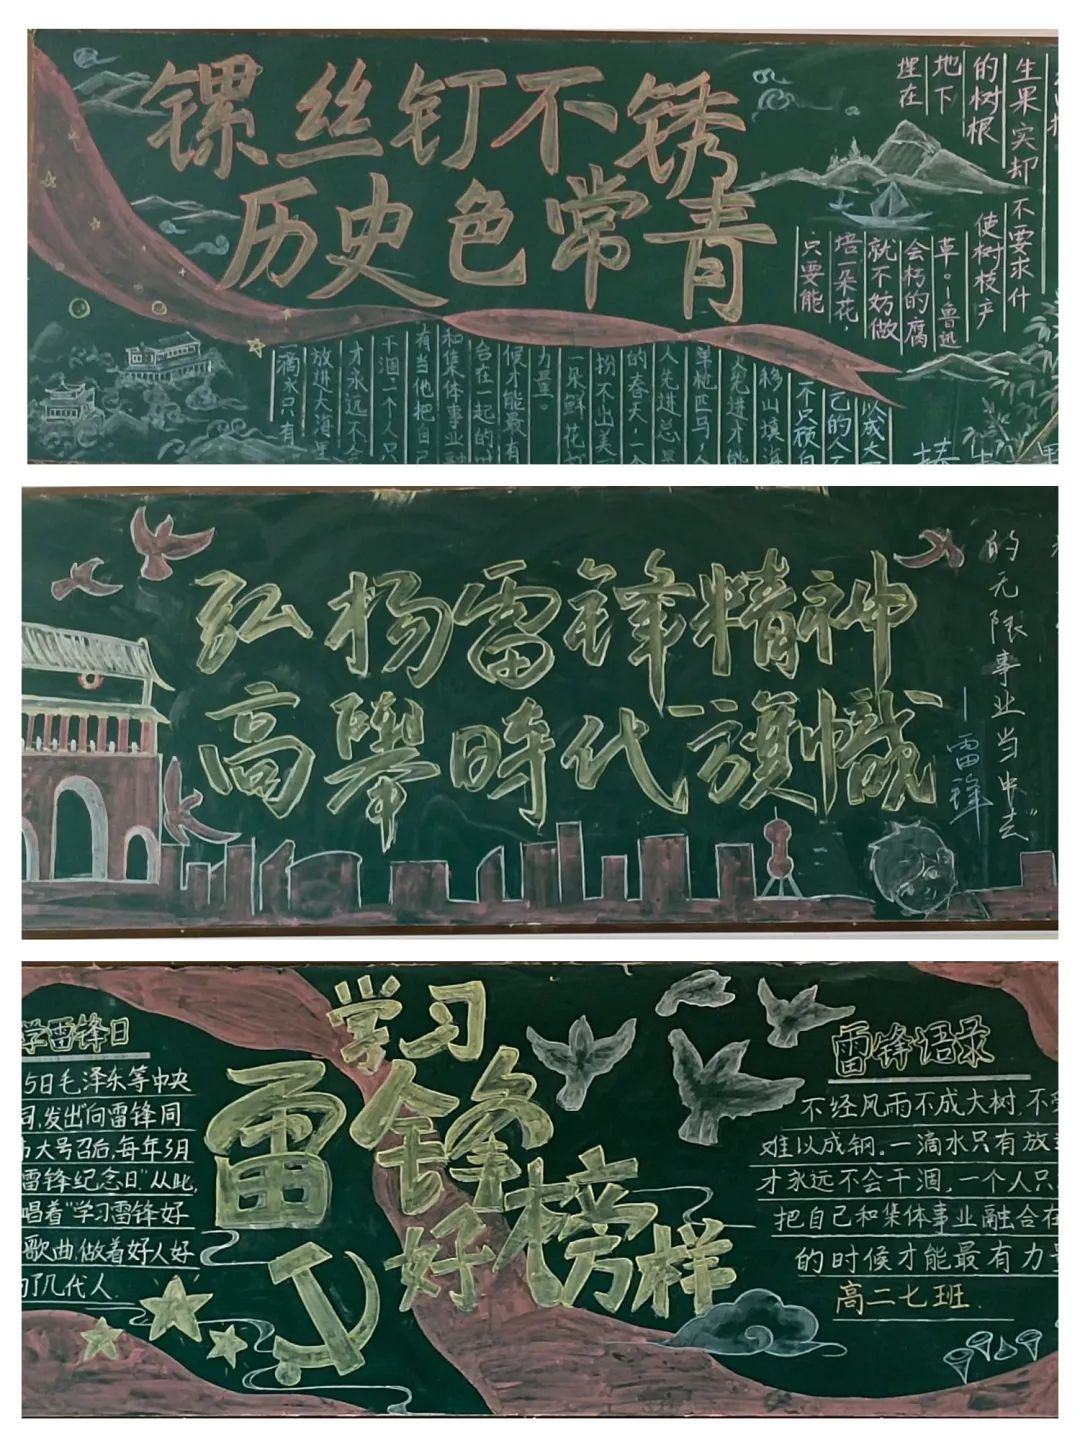 镙丝钉不锈
历史色常青
生果实却
的树根
地下
埋在
不要求什
使树枝产
草。—鲁迅
会朽的腐
就不妨做
培一朵花，
只要能
以成大
己的人
不只顾自
移山填海
人先进才能
单枪匹马，
人先进总是
的春天，一个
扮不出美
一朵鲜花打
力量。
候才能最有
合在一起的时
和集体事业融
有当他把自己
干涸，一个人只
才永远不会
放进大海里
一滴水只有
弘杨雷锋精神
高舉時代旗幟
的无限事业当中去”
—雷锋
学雷锋日
5日毛泽东等中央
同,发出“向雷锋同
大号召后,每年3月
雷锋纪念日”从此,
唱着“学习雷锋好
歌曲,做着好人好
了几代人.
学习
雷锋
好榜样
雷锋语录
不经风雨不成大树,不受
难以成钢。一滴水只有放
才永远不会干涸,一个人只
把自己和集体事业融合在
的时候才能最有力量
高二七班.